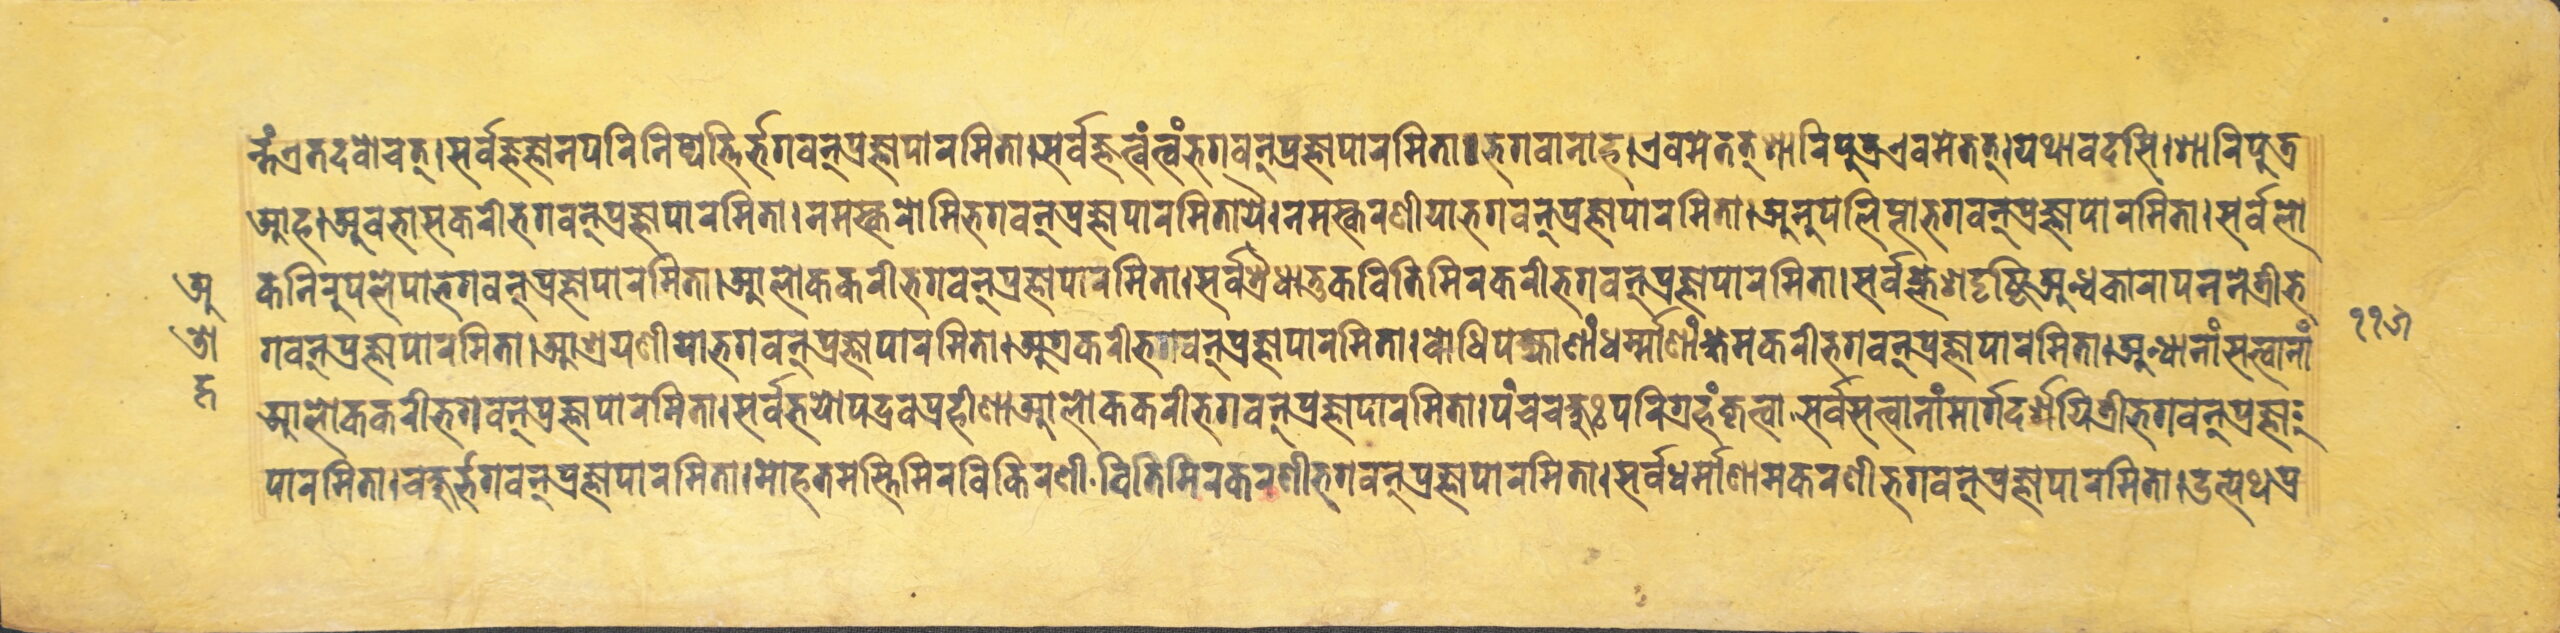 न्तं एतदवोचत्। सर्वज्ञज्ञानपरिनिष्पत्तिर्भगवन् प्रज्ञापारमिता। सर्वज्ञत्वंत्वं भगवन् प्रज्ञापारमिता॥ भगवानाह। एवमेतत् शारिपुत्र एवमेतत्। यथावदसि। शारिपुत्र
आह। अवभासकरी भगवन् प्रज्ञापारमिता। नमस्करोमि भगवन् प्रज्ञापारमितायै। नमस्करणीया भगवन् प्रज्ञापारमिता। अनुपलिप्ता भगवन् प्रज्ञापारमिता। सर्वलो
कनिरुपलेपा भगवन् प्रज्ञापारमिता। आलोककरी भगवन् प्रज्ञापारमिता। सर्वत्रैधातुकवितिमिरकरी भगवन् प्रज्ञापारमिता। सर्वक्लेशदृष्टिअन्धकारापननेत्री भ
गवन् प्रज्ञापारमिता। आश्रयणीया भगवन् प्रज्ञापारमिता। अग्रकरी भगवन् प्रज्ञापारमिता। बोधिपक्ष्याणां धर्म्माणां क्षेमकरी भगवन् प्रज्ञापारमिता। अन्धानां सत्त्वानां
आलोककरी भगवन् प्रज्ञापारमिता। सर्वभयोपद्रवप्रहीणा आलोककरी भगवन् प्रज्ञापारमिता। पंचचक्षुःपरिग्रहं कृत्वा सर्वसत्त्वानां मार्गदर्शयित्री भगवन् प्रज्ञा
पारमिता। चक्षुर्भगवन् प्रज्ञापारमिता। मोहतमस्तिमिरविकिरणी वितिमिरकरणी भगवन् प्रज्ञापारमिता। सर्वधर्माणामकरणी भगवन् प्रज्ञापारमिता। उत्पथप्र
अ
११७